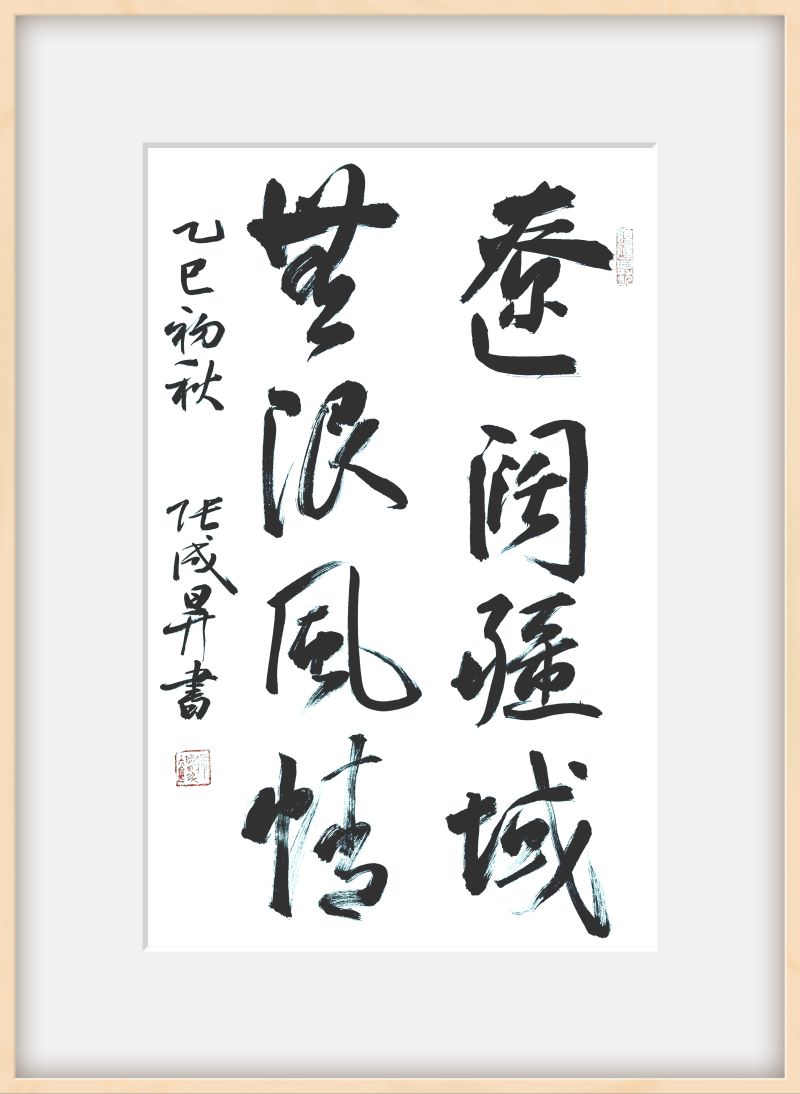 遼闊疆域
無限風情
乙巳初秋 張成昇書